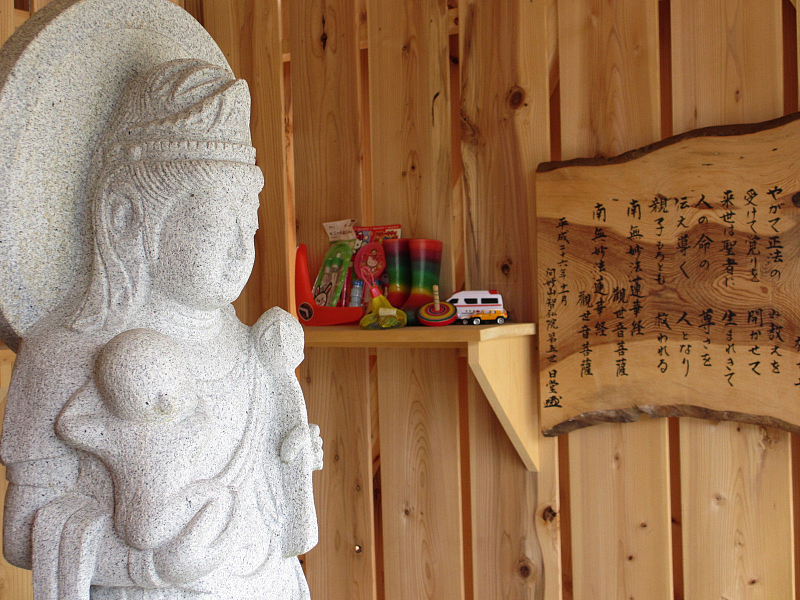 やがて正法の み教えを
受けて見りを 開かせて
来世は聖者に 生まれきて
人の命の 尊さを
伝え導く 人となり
親子もろとも 救われる
南無妙法蓮華経
観世音菩薩
南無妙法蓮華経
観世音菩薩
平成二十六年十一月
第五世 日堂